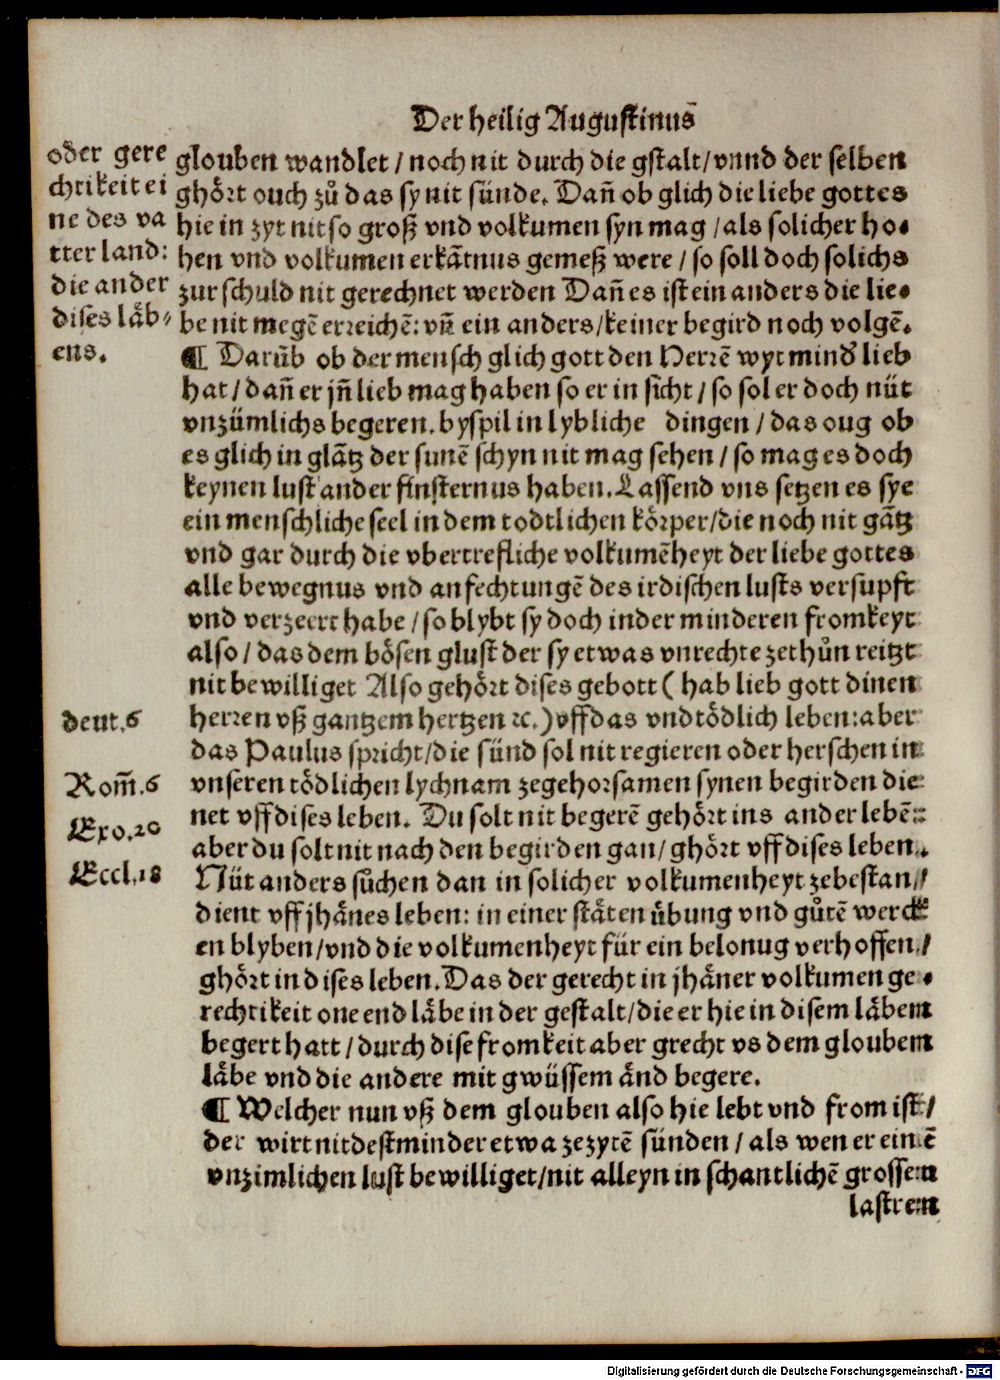 Der heilig Augustinus
oder gere
chtikeit ei
ne des va
tter land:
die ander
dises låb⸗
ens.
glouben wandlet / noch nit durch die gstalt / vnnd der selben
ghört ouch zů das sy nit sünde. Dañ ob glich die liebe gottes
hie in zyt nit so groß vnd volkumen syn mag / als solicher ho⸗
hen vnd volkumen erkãtnus gemeß were / so soll doch solichs
zur schuld nit gerechnet werden Dañ es ist ein anders die lie⸗
be nit megẽ erreichẽ: vñ ein anders / keiner begird noch volgẽ.
¶ Darũb ob der mensch glich gott den Herrẽ wyt mind lieb
hat / dañ er jñ lieb mag haben so er in sicht / so sol er doch nüt
vnzümlichs begeren. byspil in lybliche dingen / das oug ob
es glich in glãtz der sunẽ schyn nit mag sehen / so mag es doch
keynen lust an der finsternus haben. Lassend vns setzen es sye
ein menschliche seel in dem todtlichen körper / die noch nit gãtz
vnd gar durch die vbertrefliche volkumẽheyt der liebe gottes
alle bewegnus vnd anfechtungẽ des irdischen lusts versupft
vnd verzeert habe / so blybt sy doch in der minderen fromkeyt
also / das dem bösen glust der sy etwas vnrechte zethůn reitzt
nit bewilliget Also gehört dises gebott ( hab lieb gott dinen
herren vß gantzem hertzen ꝛc. ) vff das vnd tödlich leben: aber
das Paulus spricht / die sünd sol nit regieren oder herschen in
vnseren tödlichen lychnam zegehorsamen synen begirden die
net vff dises leben. Du solt nit begerẽ gehört ins ander lebẽ:
aber du solt nit nach den begirden gan / ghört vff dises leben.
Nüt anders sůchen dan in solicher volkumenheyt zebestan /
dient vff jhånes leben: in einer ståten übung vnd gůtẽ werck
en blyben / vnd die volkumenheyt für ein belonug verhoffen /
ghört in dises leben. Das der gerecht in jhåner volkumen ge⸗
rechtikeit one end låbe in der gestalt / die er hie in disem låben
begert hatt / durch dise fromkeit aber grecht vs dem glouben
låbe vnd die andere mit gwüssem ånd begere.
¶ Welcher nun vß dem glouben also hie lebt vnd from ist /
der wirt nitdestminder etwa zezytẽ sünden / als wen er einẽ
vnzimlichen lust bewilliget / nit alleyn in schantlichẽ grossen
lastren
deut. 6
Rom̃. 6
Exo. 20
Eccl. 18
Digitalisierung gefördert durch die Deutsche Forschungsgemeinschaft - DFG